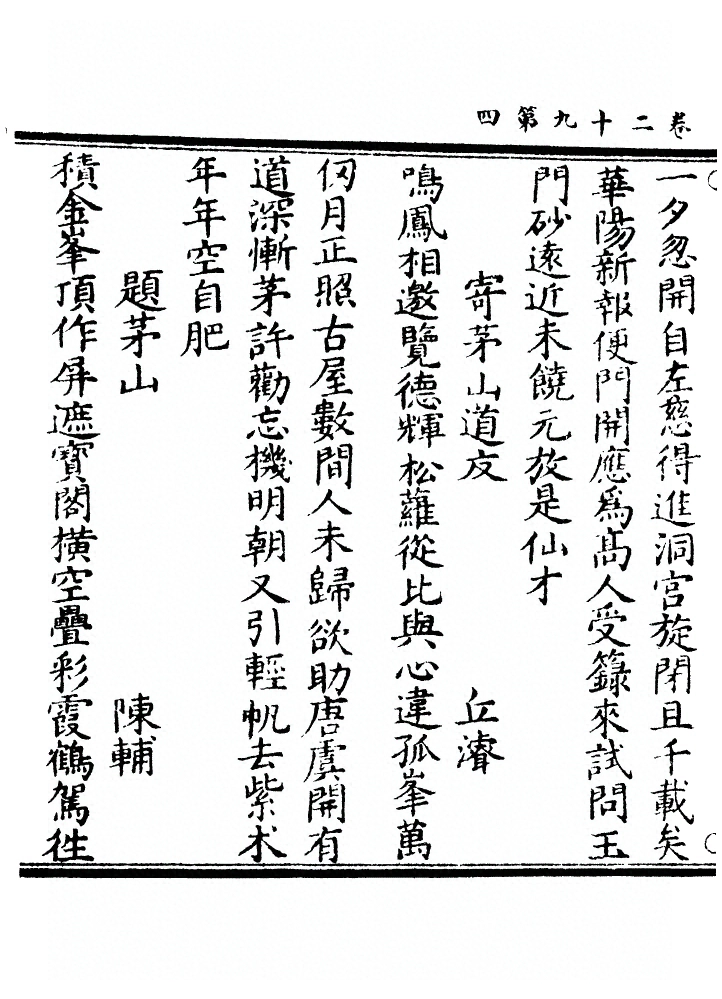 卷二十九第四
一夕忽開自左慈得進洞宮旋閉且千載矣
華陽新報便門開應爲高人受籙來試問玉
門砂遠近未饒元放是仙才
寄茅山道友 丘濬
鳴鳳相邀覽德輝松蘿從比與心違孤峯萬
仞月正照古屋數間人未歸欲助唐虞開有
道深慚茅許勸忘機明朝又引輕帆去紫术
年年空自肥
題茅山 陳輔
積金峯頂作屏遮寶閣橫空疊彩霞鶴駕徃